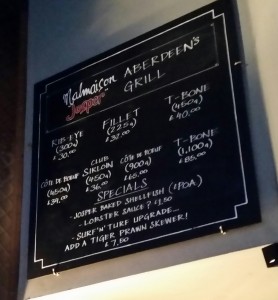 Malmaison ABERDEEN'S
Josper GRILL
RIB-EYE FILLET T-BONE
(300g) (225g) (450g)
£30.00 £32.00 £40.00
CÔTE DE BOEUF CLUB SIRLOIN CÔTE DE BOEUF T-BONE
(450g) (450g) (900g) (1,100g)
£34.00 £36.00 £65.00 £85.00
SPECIALS
- JOSPER BAKED SHELLFISH (£POA)
- LOBSTER SAUCE? £1.50
- SURF 'N' TURF UPGRADE -
ADD A TIGER PRAWN SKEWER!
£7.50